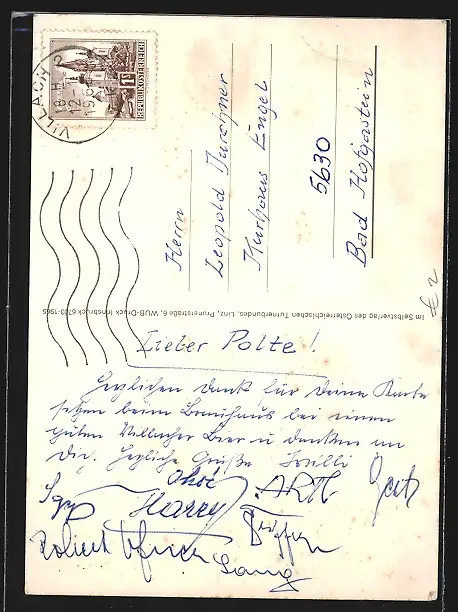 VILLACH 2
18 H
12
196
REPUBLIK ÖSTERREICH
Herrn
Leopold
Kurhaus Engel
5630
Bad Hofgastein
Im Selbstverlag des Österreichischen Turnerbundes, Linz, Prunerstraße 6, WUB-Druck Innsbruck 6703-1965
€ 2
Lieber Polte!
Herzlichen Dank für Deine Karte
sitzen beim Brauhaus bei einem
guten Villacher Bier u denken an
Dich. Herzliche Grüße Willi
Sepp Harry
Robert